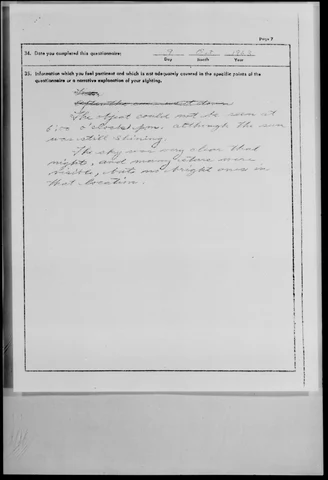 Page 7
34. Date you completed this questionnaire: 9 Oct
Day Month Year
35. Information which you feel pertinent and which is not adequately covered in the specific points of the
questionnaire or a narrative explanation of your sighting.
After the sun went down
The object could not be seen at
6:00 o'clock p.m. although the sun
was still shining.
The sky was very clear that
night, and many stars were
visible, but no bright ones in
that location.